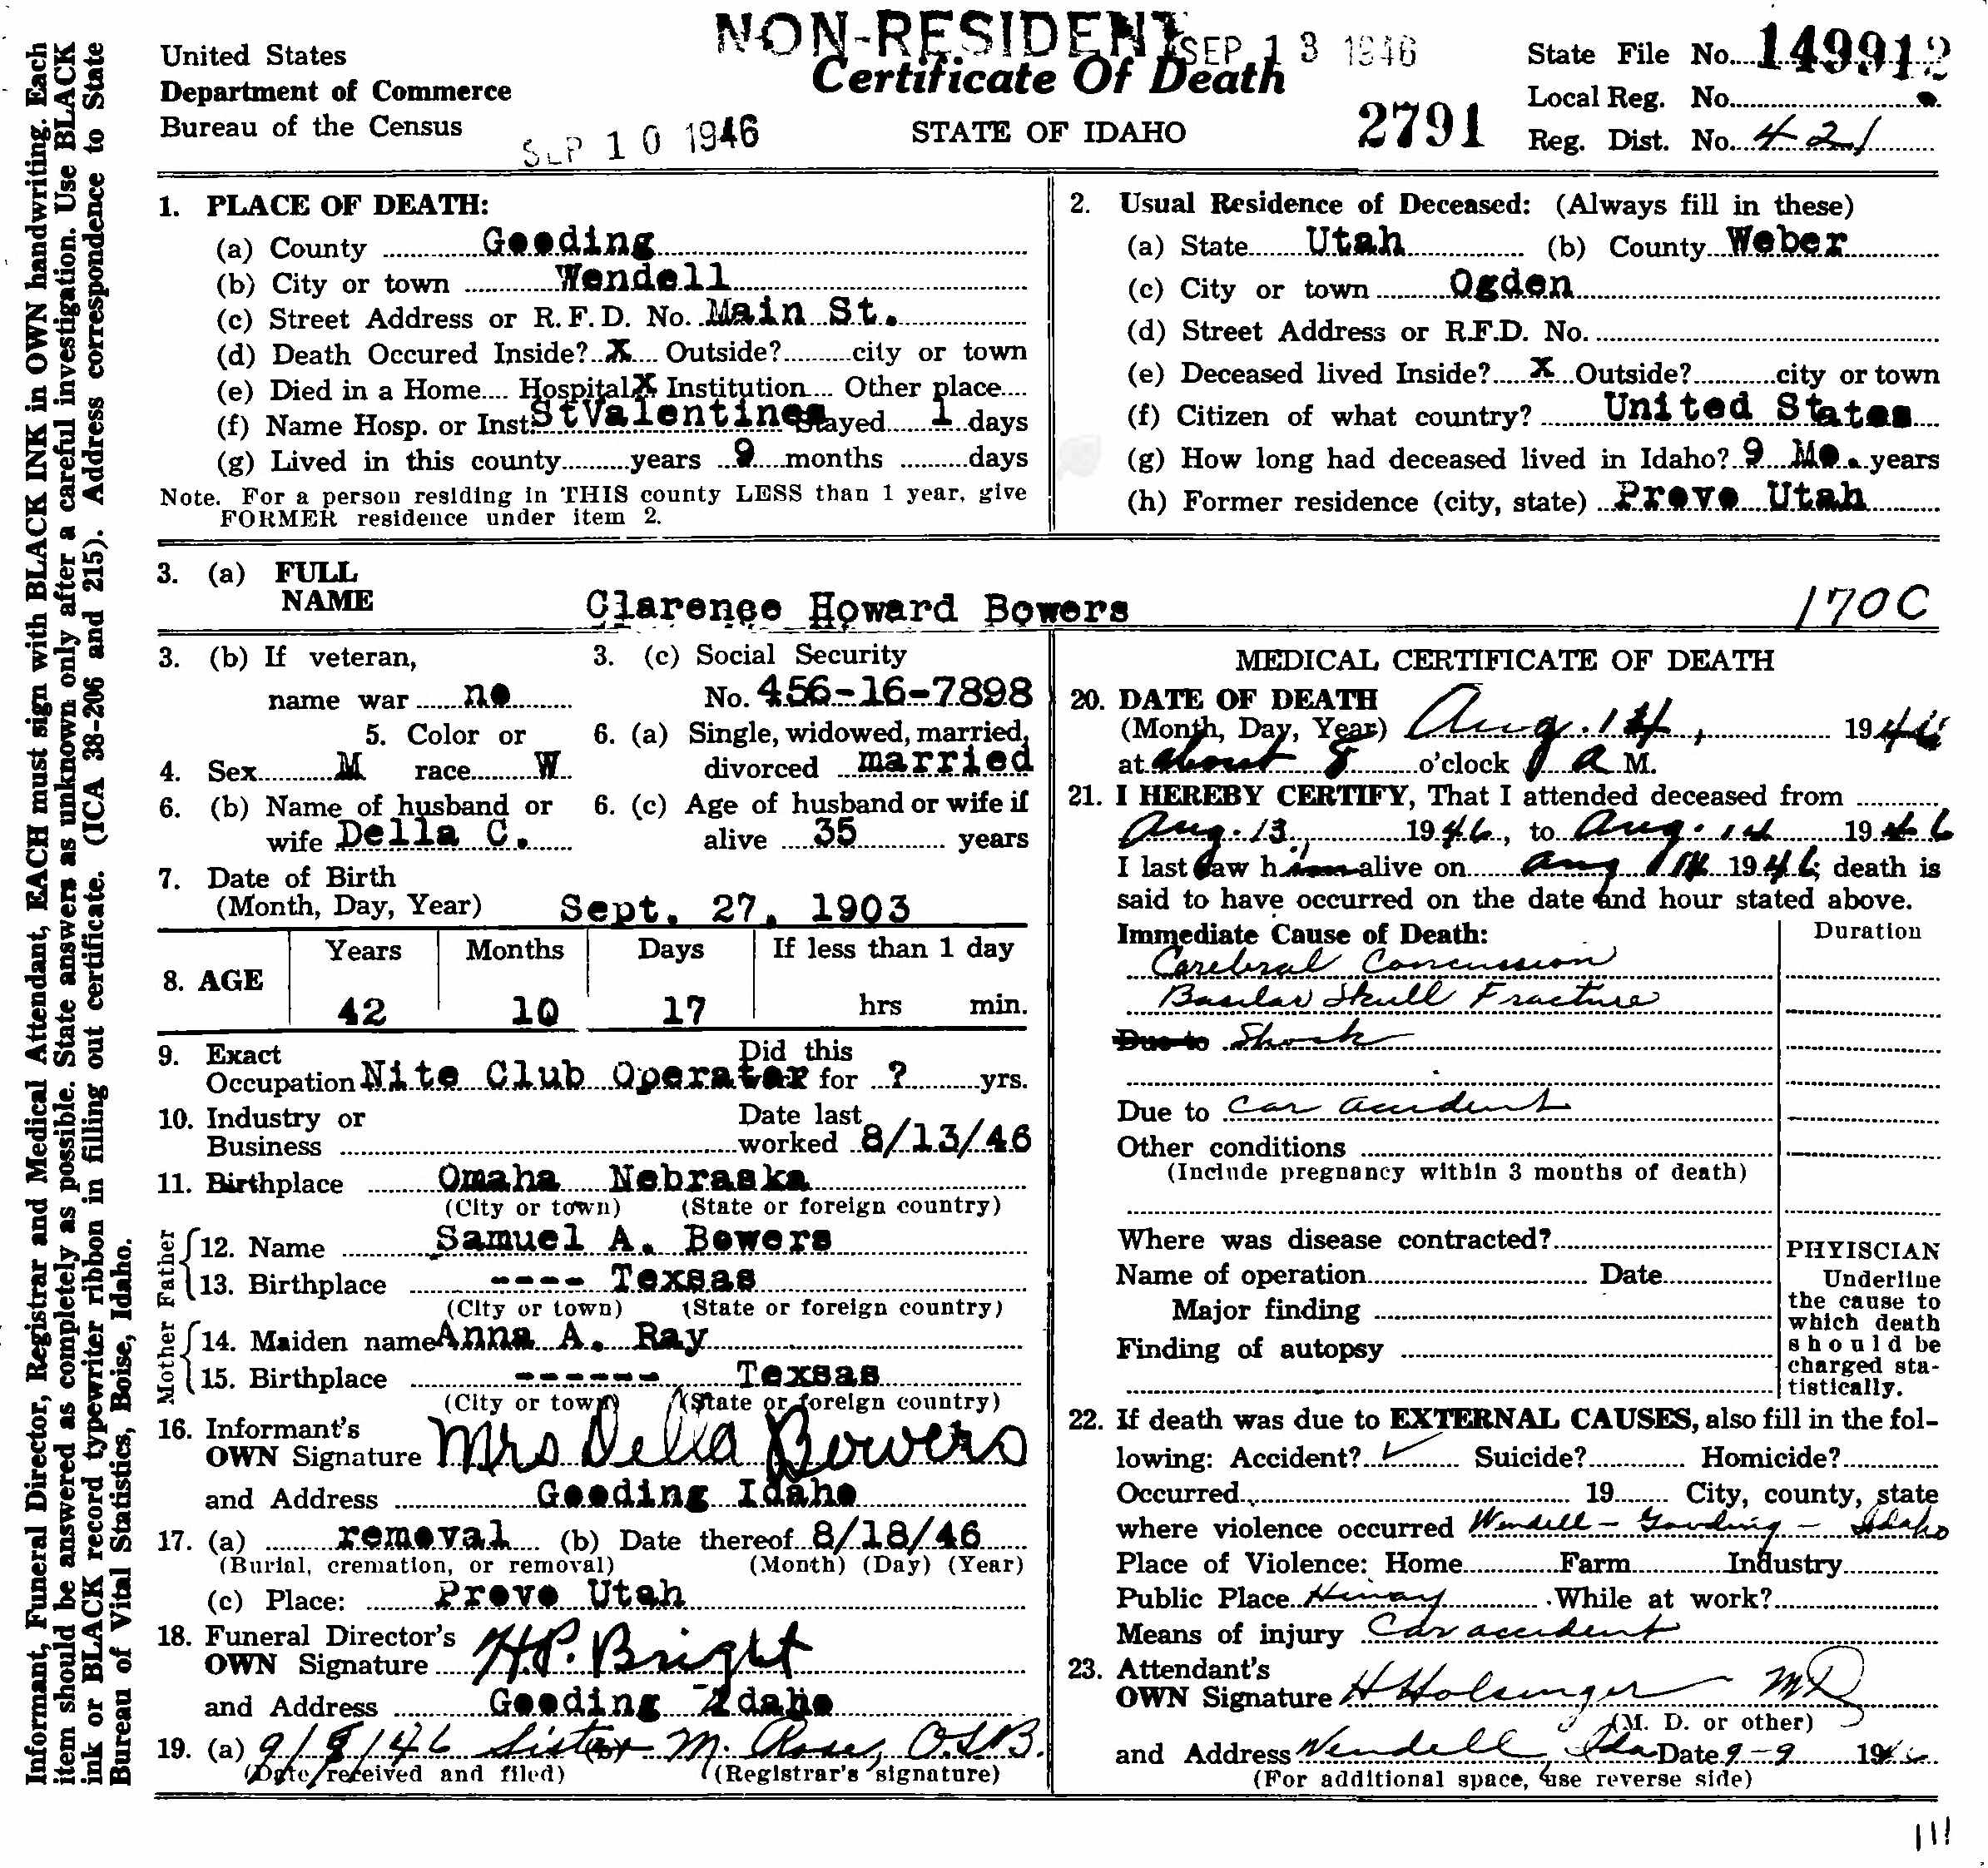 NON-RESIDENT
SEP 13 1946
United States
Department of Commerce
Bureau of the Census
SEP 10 1946
Certificate Of Death
STATE OF IDAHO
2791
State File No. 149912
Local Reg. No.
Reg. Dist. No. 421
1. PLACE OF DEATH:
(a) County Gooding
(b) City or town Wendell
(c) Street Address or R.F.D. No. Main St.
(d) Death Occured Inside? X Outside? city or town
(e) Died in a Home Hospital X Institution Other place
(f) Name Hosp. or Inst: St Valentines Stayed 1 days
(g) Lived in this county years 9 months days
Note. For a person residing in THIS county LESS than 1 year, give
FORMER residence under item 2.
2. Usual Residence of Deceased: (Always fill in these)
(a) State Utah (b) County Weber
(c) City or town Ogden
(d) Street Address or R.F.D. No.
(e) Deceased lived Inside? X Outside? city or town
(f) Citizen of what country? United States
(g) How long had deceased lived in Idaho? 9 Mo. years
(h) Former residence (city, state) Provo Utah
3. (a) FULL
NAME Clarence Howard Bowers 170C
3. (b) If veteran,
name war no
3. (c) Social Security
No. 456-16-7898
4. Sex M
5. Color or
race W
6. (a) Single, widowed, married,
divorced married
6. (b) Name of husband or
wife Della C.
6. (c) Age of husband or wife if
alive 35 years
7. Date of Birth
(Month, Day, Year) Sept. 27, 1903
8. AGE
Years Months Days If less than 1 day
42 10 17 hrs min.
9. Exact
Occupation Nite Club Operator
Did this
for ? yrs.
10. Industry or
Business
Date last
worked 8/13/46
11. Birthplace Omaha Nebraska
(City or town) (State or foreign country)
Father
12. Name Samuel A. Bowers
13. Birthplace ---- Texsas
(City or town) (State or foreign country)
Mother
14. Maiden name Anna A. Ray
15. Birthplace ------ Texsas
(City or town) (State or foreign country)
16. Informant's
OWN Signature Mrs Della Bowers
and Address Gooding Idaho
17. (a) removal (b) Date thereof 8/18/46
(Burial, cremation, or removal) (Month) (Day) (Year)
(c) Place: Provo Utah
18. Funeral Director's
OWN Signature H.P. Bright
and Address Gooding Idaho
19. (a) 9/8/46 Sister M. Rose, O.S.B.
(Date received and filed) (Registrar's signature)
MEDICAL CERTIFICATE OF DEATH
20. DATE OF DEATH
(Month, Day, Year) Aug. 14, 1946
at about 8 o'clock A M.
21. I HEREBY CERTIFY, That I attended deceased from
Aug. 13, 1946, to Aug. 14 1946
I last saw him alive on Aug 14 1946; death is
said to have occurred on the date and hour stated above.
Immediate Cause of Death: Duration
Cerebral Concussion
Basilar Skull Fracture
Due to Shock
Due to Car accident
Other conditions
(Include pregnancy within 3 months of death)
Where was disease contracted?
Name of operation Date
Major finding
Finding of autopsy
PHYISCIAN
Underline
the cause to
which death
should be
charged sta-
tistically.
22. If death was due to EXTERNAL CAUSES, also fill in the fol-
lowing: Accident? ✓ Suicide? Homicide?
Occurred 19 City, county, state
where violence occurred Wendell - Gooding - Idaho
Place of Violence: Home Farm Industry
Public Place Hiway While at work?
Means of injury Car accident
23. Attendant's
OWN Signature H Holsinger MD
(M. D. or other)
and Address Wendell, Ida Date 9-9 1946
(For additional space, use reverse side)
Informant, Funeral Director, Registrar and Medical Attendant, EACH must sign with BLACK INK in OWN handwriting. Each
item should be answered as completely as possible. State answers as unknown only after a careful investigation. Use BLACK
ink or BLACK record typewriter ribbon in filling out certificate. (ICA 38-206 and 215). Address correspondence to State
Bureau of Vital Statistics, Boise, Idaho.
111